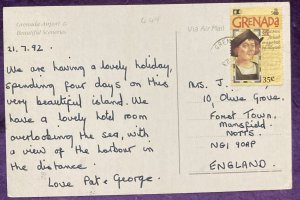 Grenada Airport &
Beautiful Sceneries
644
Via Air Mail
21.7.92
We are having a lovely holiday,
spending four days on this
very beautiful island. We
have a lovely hotel room
overlooking the sea, with
a view of the harbour in
the distance.
Love Pat & George.
GRENADA
35c
Mrs. J.
10, Olive Grove,
Forest Town,
Mansfield
NOTTS.
ENGLAND.